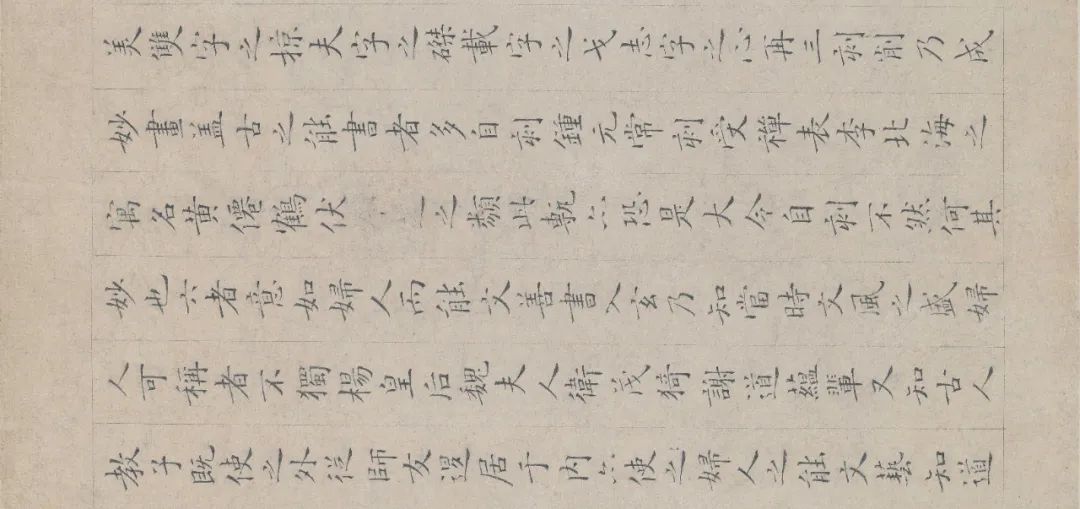 美雙字之掠夫字之磔載字之戈志字之心再三刻削乃成
妙畫盖古之能書者多自刻鍾元常刻受禪表李北海之
寓名黄僊鶴伏之類此甎亦恐是大令自刻不然何其
妙也六者意如婦人而能文善書入玄乃知當時文風之盛婦
人可稱者不獨楊皇后魏夫人衛茂猗謝道藴輩又知古人
教子既使之外從師友居于内亦使之婦人之能文藝知道